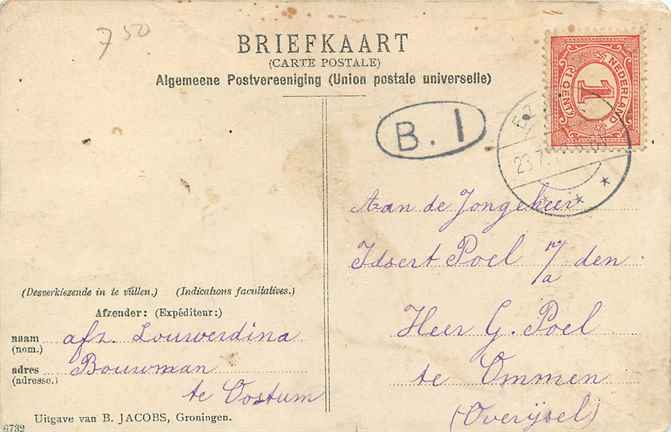 7 50
BRIEFKAART
(CARTE POSTALE)
Algemeene Postvereeniging (Union postale universelle)
NEDERLAND
1
CENT
B. 1
23.7
Aan de Jongeheer
Idsert Poel p/a den
Heer G. Poel
te Ommen
(Overijsel)
(Desverkiezende in te vullen.) (Indications facultatives.)
Afzender: (Expéditeur:)
naam (nom.) afz. Louwerdina
adres (adresse.) Bouwman
te Oostum
Uitgave van B. JACOBS, Groningen.
6732